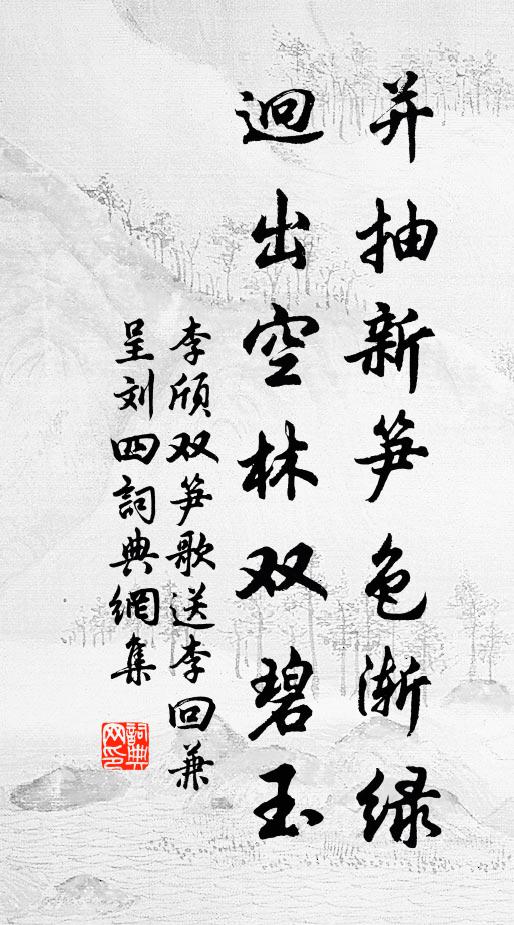 并抽新笋色渐绿
迥出空林双碧玉
李颀双笋歌送李回兼
呈刘四詞典網集
詞典
网印